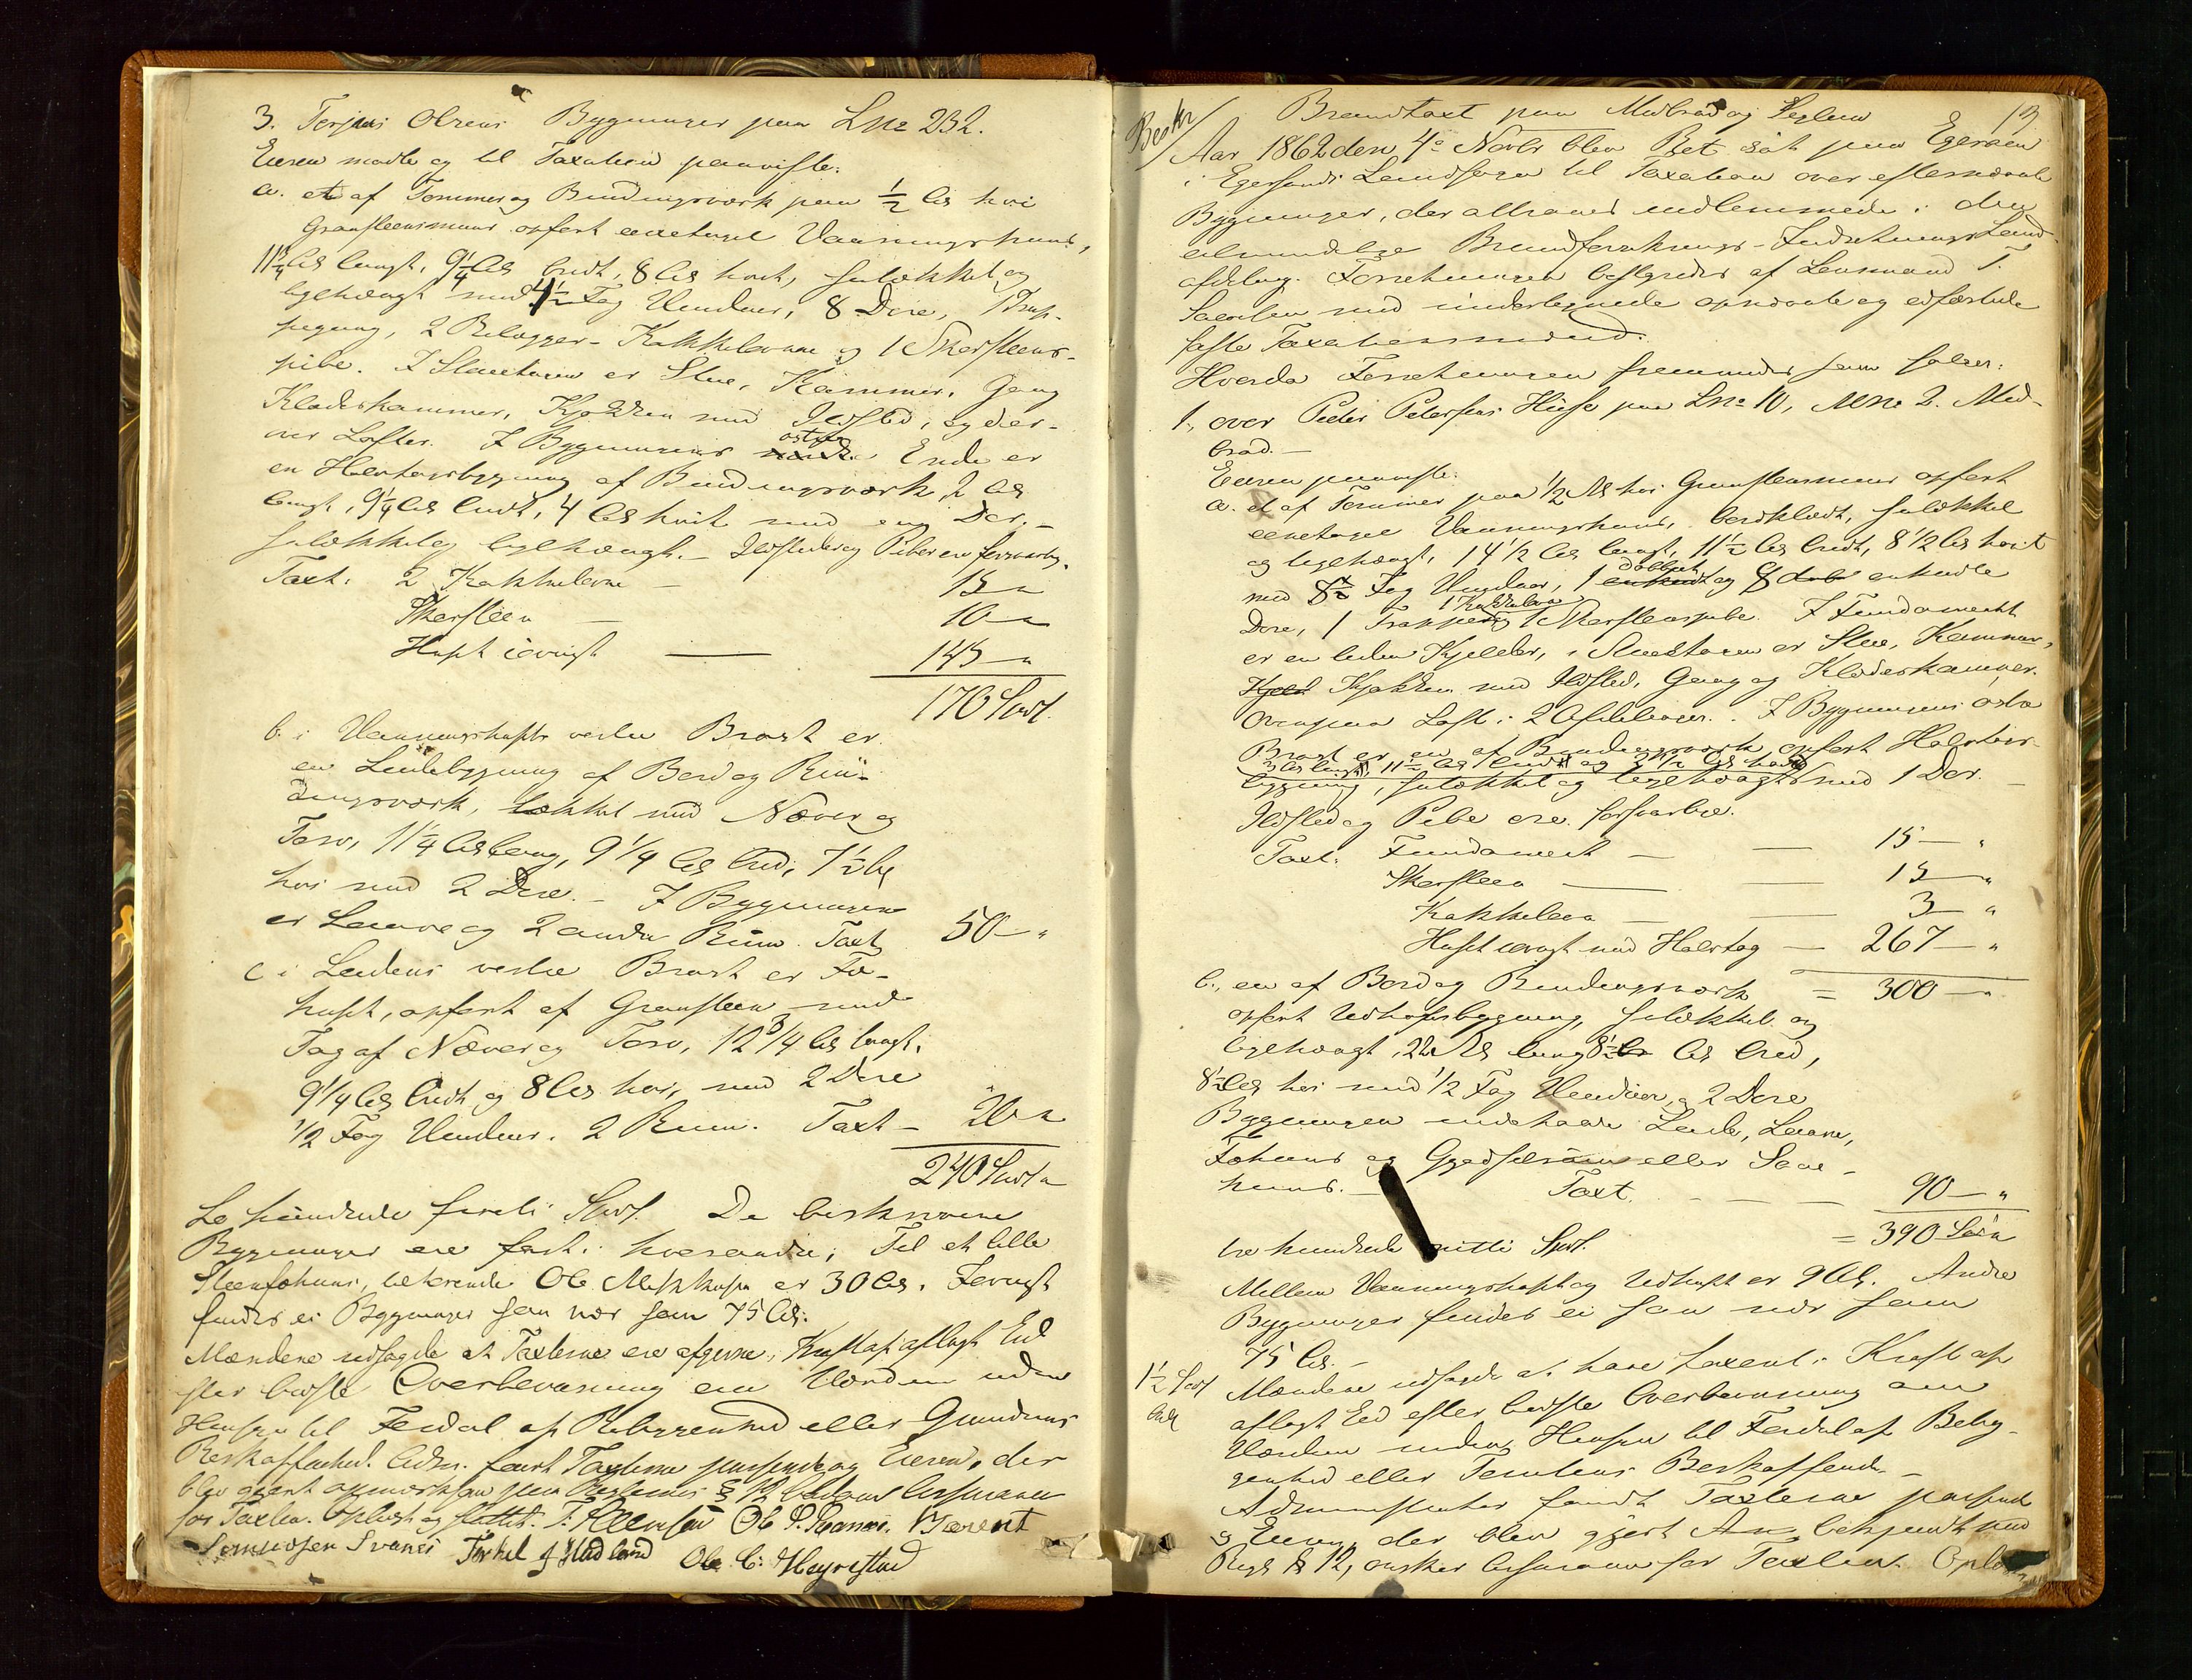 3. Terjus Olsens Bygninger paa Lno 232.
Eieren mødte og til Taxation paaviste:
a. et af Tømmer og Bindingsværk paa 1/2 Al høi
Graasteensmuur opført eenetages Vaaningshuus,
11 3/4 Al langt, 9 1/4 Al bredt, 8 Al høit, tulækket og
teglhængt med 4 1/2 Fag Vinduer, 8 Døre, 1 Trap-
pegang, 2 Bilægger-Kakkelovne og 1 Skorsteens-
pibe. I Stueetagen er Stue, Kammer, Gang
Klædeskammer, Kjøkken med Ildsted, og der-
over Lofter. I Bygningens østre Ende er
en Halvtagsbygning af Bindingsværk, 2 Al
langt, 9 1/4 Al bredt, 4 Al høit med en Dør, -
tulækket og teglhængt. - Ildsted og Pibe ere forsvarlig.
Taxt: 2 Kakkelovne - 15 "
Skorsteen - 10 "
Huset iøvrigt - 145 "
170 Spd.
b. i Vaaningshusets vestre Brøst er
en Ladebygning af Bord og Bin-
dingsværk, tækket med Næver og
Torv, 11 1/4 Al lang, 9 1/4 Al bred, 7 1/2 Al
høi med 2 Døre. - I Bygningen
er Laave og 2 andre Rum. Taxt 50 - "
c. i Ladens vestre Brøst er Fæ-
huset, opført af Graasteen med
Tag af Næver og Torv, 12 3/4 Al langt,
9 1/4 Al bredt og 8 Al høi, med 2 Døre
1/2 Fag Vinduer. 2 Rum. Taxt - 20 "
240 Spd "
To hundrede firti Spd. De beskrevne
Bygninger ere fast i hverandre; Til et lille
Steenfæhuus, tilhørende Ole er 30 Al. Iøvrigt
findes ei Bygninger saa nær som 75 Al.
Mændene udsagde at Taxterne ere afgivne i Kraft af aflagt Eed
efter bedste Overbevisning om Værdien uden
Hensyn til Fordel af Beliggenhed eller Grundens
Beskaffenhed. Adm. fandt Taxterne passende og Eieren, der
blev gjort opmærksom paa Reglernes § 12 Assurance
for Taxten. Oplæst og sluttet. T. Salvesen Ole P. Svanes. Bærent
Samuelsen Svanes Torkel J Hadland Ole C. Høyrestad
Beskr
Brandtaxt paa Midbrød og Seglem 13
Aar 1862 den 4de Novbr blev Ret sat paa Egerøen
i Egersunds Landsogn til Taxation over efternævnte
Bygninger, der attraaes indlemmede i den
almindelige Brandforsikrings-Indretnings Land-
afdeling. Forretningen bestyredes af Lensmand T.
Salvesen med undertegnede opnævnte og edfæstede
faste Taxationsmænd.
Hvorda Forretningen fremmedes som følger:
1, over Peder Petersens Huse paa Lno 10, MNo 2. Mid-
brød. -
Eieren paaviste:
a. et af Tømmer paa 1/2 Al høi Graasteensmuur opført
eenetages Vaaningshuus, bordklædt, tulækket
og teglhængt, 14 1/2 Al langt, 11 1/2 Al bredt, 8 1/2 Al høit
med 8 1/2 Fag Vinduer, 1 dobbelt og 8 enkelte
Døre, 1 Trappe 1 Kakkelovn og 1 Skorsteenspibe. I Fundamentet
er en liden Kjelder, i Stueetagen er Stue, Kammer,
Kjøkken med Ildsted, Gang og Klædeskammer.
Ovenpaa Loft i 2 Afdelinger. I Bygningens østre
Brøst er en af Bindingsværk opført Halvtags-
3 Al langt, 11 1/2 Al bredt og 3 1/2 Al høit
bygning, tulækket og teglhængt med 1 Dør. -
Ildsted og Pibe ere forsvarlige.
Taxt: Fundament - 15 - "
Skorsteen - 15 - "
Kakkelovn - 3 - "
Huset iøvrigt med Halvtag - 267 - "
= 300 - "
b., en af Bord og Bindingsværk
opført Udhuusbygning, tulækket og
teglhængt, 22 Al lang 8 1/2 Al bred,
8 1/2 Al høi med 1/2 Fag Vinduer, og 2 Døre
Bygningen indehaver Lade, Laave,
Fæhuus og Gjødselrum eller Saue-
huus. - Taxt. - 90 - "
= 390 Spd "
tre hundrede nitti Spd.
Mellem Vaaningshuset og Udhuset er 9 Al. Andre
Bygninger findes ei saa nær som
75 Al. -
1 1/2 Spd
betlt
Mændene udsagde at have taxeret i Kraft af
aflagt Eed efter bedste Overbevisning om
Værdien uden Hensyn til Fordel af Belig-
genhed eller Tomtens Beskaffenhed. -
Administrator fandt Taxterne passende
og Eieren der blev gjort bekjendt med
Regl § 12, ønsker Assurance for Taxten. Oplæst